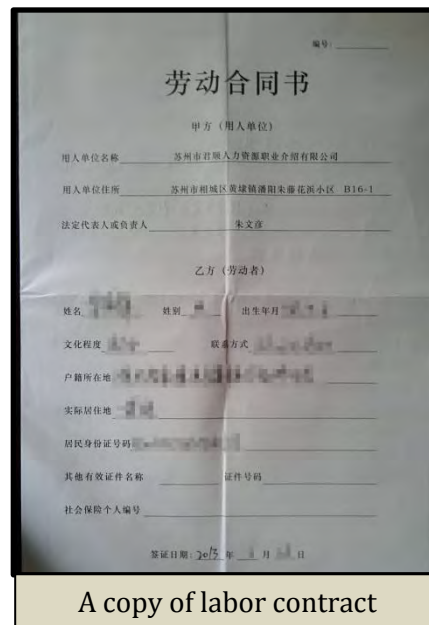 编号:
劳动合同书
甲方（用人单位）
用人单位名称 苏州市君顺人力资源职业介绍有限公司
用人单位住所 苏州市相城区黄埭镇潘阳朱藤花浜小区 B16-1
法定代表人或负责人 朱文彦
乙方（劳动者）
姓名 性别 出生年月
文化程度 联系方式
户籍所在地
实际居住地
居民身份证号码
其他有效证件名称 证件号码
社会保险个人编号
签证日期: 2013 年 月 日
A copy of labor contract